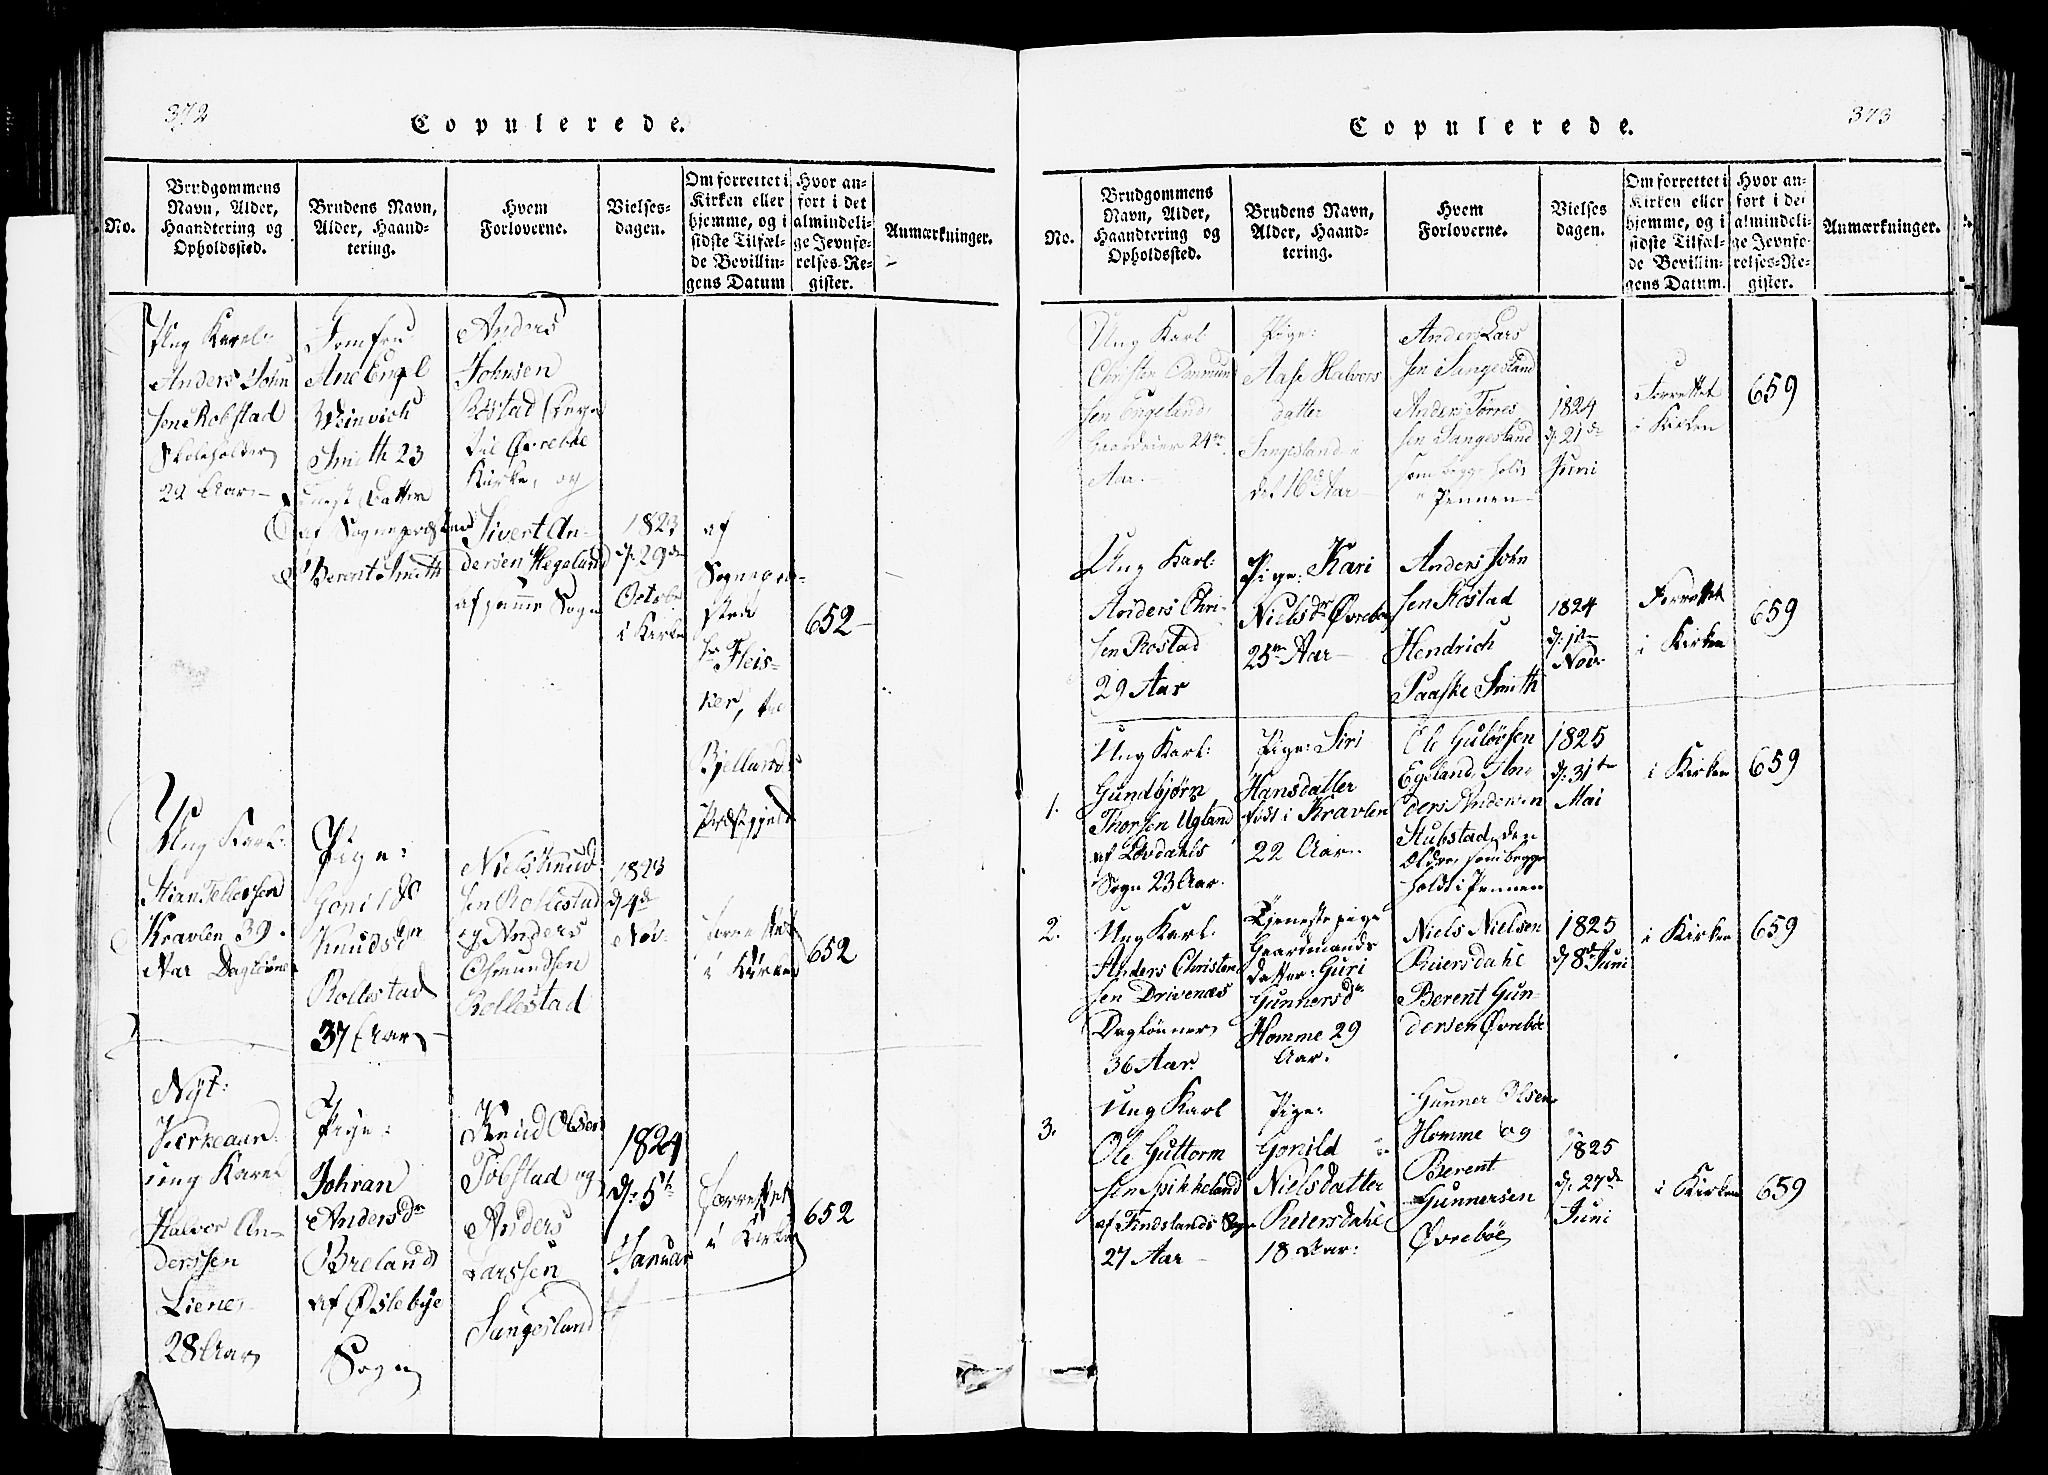 372
Copulerede.
No.
Brudgommens
Navn, Alder,
Haandtering og
Opholdssted.
Brudens Navn,
Alder, Haand-
tering.
Hvem
Forloverne.
Vielses-
dagen.
Om forrettet i
Kirken eller
hjemme, og i
sidste Tilfæl-
de Bevillin-
gens Datum
Hvor an-
fört i det
almindeli-
ge Jevnfø-
relses-Re-
gister.
Anmærkninger.
Ung Karel:
Anders John
sen Robstad
Skoleholder
22 Aar
Jomfru
Ane Engel
Weinvich
Smith 23
Datter
af Sognepræsten
Berent Smith
Anders
Johnsen
Røstad
til Øvrebøe
Kirke, og
Sivert An-
dersen Hegeland
af samme Sogn
1823
d: 29de
Octobr
i Kirke
af
Sognepræ-
sten
Hr Fleis-
ker, til
Bjellands
Præstegjeld
652
Ung Karl:
Stian Tellefsen
Kravlen 39
Aar Dagløner
Pige:
Gonild
Knudsdr
Rollestad
37 Aar
Niels Knud
sen Rollestad
og Anders
Osmundsen
Rollestad
1823
d 4de
Nov:
forrettet
i Kirken
652
Nÿt:
ung Karel
Halvor An-
derssen
Liene
28 Aar
Pige:
Johran
Andersdr
Breland
af Øslebye
Sogn
Knud Olsen
Tobstad og
Anders
Larssen
Sangesland
1824
d: 5te
Januar
forrettet
i Kirken
652
373
Copulerede.
No.
Brudgommens
Navn, Alder,
Haandtering og
Opholdssted.
Brudens Navn,
Alder, Haand-
tering.
Hvem
Forloverne.
Vielses
dagen.
Om forrettet i
Kirken eller
hjemme, og i
sidste Tilfæl-
de Bevillin-
gens Datum.
Hvor an-
fört i det
almindeli-
ge Jevnfø-
relses-Re-
gister.
Anmærkninger.
Ung Karl:
Christen Osmund
sen Engeland
Gaardeier 24
Aar.
Pige:
Aase Halvors
datter
Sangesland
16 Aar
Anders Lars
sen Sangesland
Anders Torres
sen Sangesland
som begge holdt
i Pennen
1824
d: 21de
Juni
Forrettet
i Kirken
659
Ung Karl:
Anders Chri-
sen Rostad
29 Aar
Pige: Kari
Nielsdr Øvrebøe
25 Aar
Anders John
sen Rostad
Hendrich
Paaske Smith
1824
d: 1ste
Nov:
Forrettet
i Kirken
659
1.
Ung Karl:
Gundbjørn
Thorsen Ugland
af Løvdahls
Sogn 23 Aar.
Pige: Siri
Hansdatter
født i Kravlen
22 Aar
Ole Guløvsen
Egeland, An-
ders Andersen
Stubstad, den
Ældre, som begge
holdt i Pennen
1825
d: 31te
Mai
i Kirken
659
2.
Ung Karl:
Anders Christen
sen Drivenæs
Dagløner
36 Aar
Tjenestepige
Gaardmands
datter: Guri
Gunnersdr
Homme 29
Aar.
Niels Nielsen
Reiersdahl
Berent Gun-
dersen Øvrebøe
1825
d 8de Juni
i Kirken
659
3.
Ung Karl
Ole Guttorm
sen Spikkeland
af Findslands Sogn
27 Aar
Pige:
Gonild
Nielsdatter
Reiersdahl
18 Aar:
Gunner Olsen
Homme og
Berent
Gunnersen
Øvrebøe
1825
d: 27de
Juni
i Kirken
659